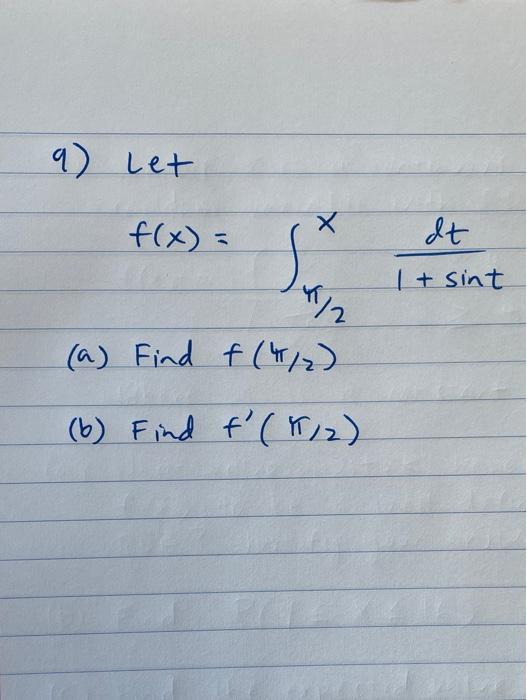 9) Let
f(x) = ∫_{π/2}^{x} dt / (1 + sin t)
(a) Find f(π/2)
(b) Find f'(π/2)